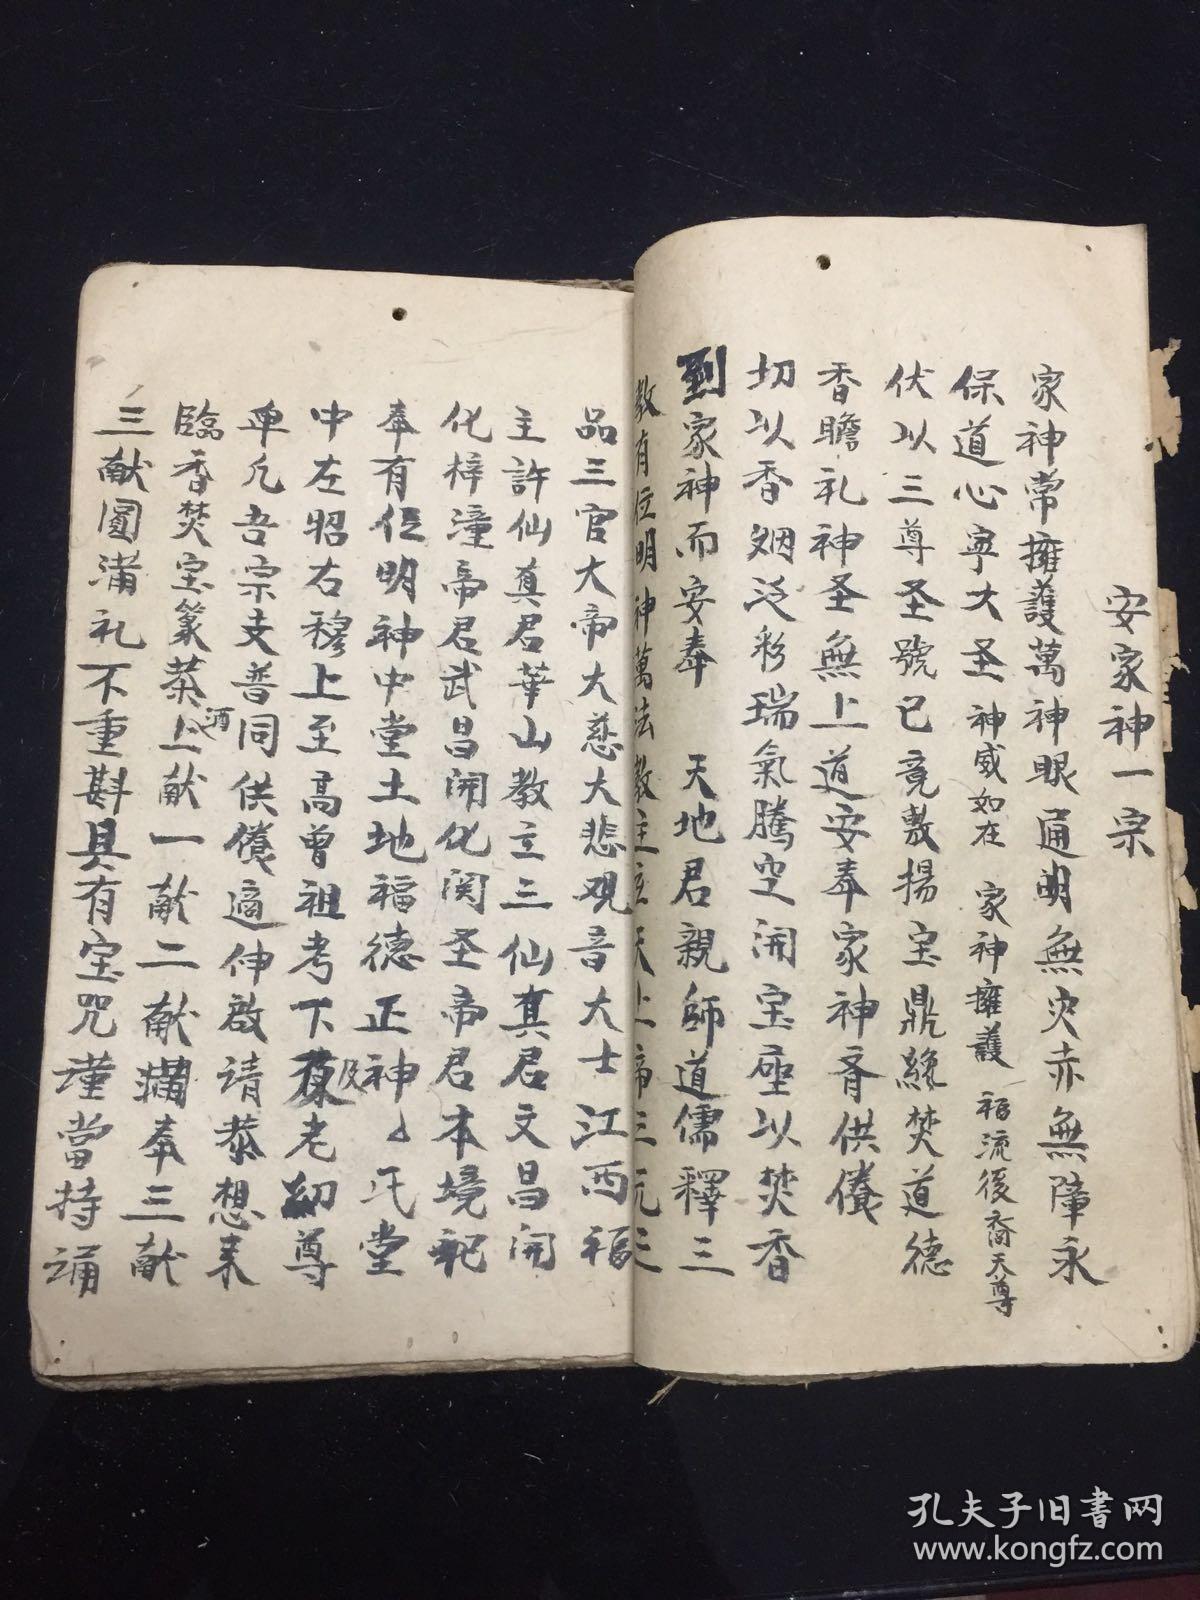 安家神一宗
家神常擁護萬神眼通明無灾亦無障永
保道心寧大圣神威如在 家神擁護 福流後裔天尊
伏以三尊圣號已竟敷揚宝鼎緣焚道德
香瞻礼神圣無上道安奉家神斉供養
切以香烟泛彩瑞氣騰空開宝座以焚香
到家神而安奉 天地君親師道儒釋三
教有位明神萬法教主玄天上帝三元三
品三官大帝大慈大悲观音大士江西福
主許仙真君華山教主三仙真君文昌開
化梓潼帝君武昌開化関圣帝君本境祀
奉有位明神中堂土地福德正神氏堂
中左昭右穆上至高曾祖考下及老幼尊
卑凢吾宗支普同供養適伸啟請恭想来
臨香焚宝篆茶酒上献一献二献满奉三献
三献圓满礼不重斟具有宝咒谨當持誦
孔夫子旧書网
www.kongfz.com